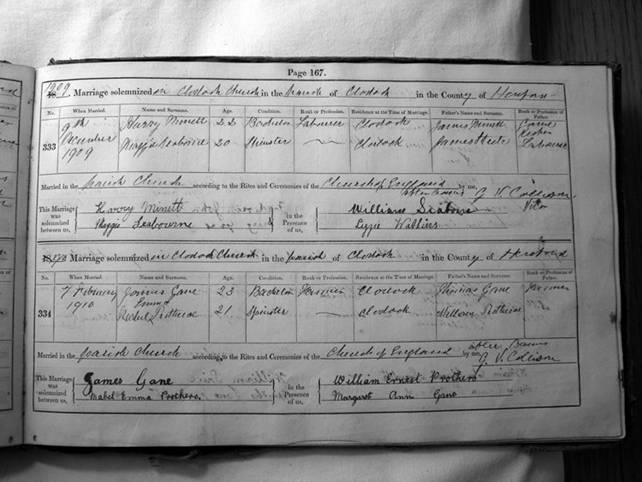 Page 167.
1909 Marriage solemnized in Clodock Church in the parish of Clodock in the County of
No. When Married. Name and Surname. Age. Condition. Rank or Profession. Residence at the Time of Marriage. Father's Name and Surname. Rank or Profession of Father.
333 9th December 1909 Harry Minett 22 Bachelor Labourer Clodock James Minett
20 Spinster — Clodock James Labourer
Married in the parish Church according to the Rites and Ceremonies of the Church of England after Banns by me,
This Marriage was solemnized between us, Harry Minett Seabourne in the Presence of us, William Lizzie Watkins Vicar
Marriage solemnized in Clodock Church in the parish of Clodock in the County of Hereford
No. When Married. Name and Surname. Age. Condition. Rank or Profession. Residence at the Time of Marriage. Father's Name and Surname. Rank or Profession of Father.
334 7 February 1910 James Gane 23 Bachelor Clodock Thomas Gane
Emma 21 Spinster — Clodock William
Married in the parish Church according to the Rites and Ceremonies of the Church of England after Banns by me,
This Marriage was solemnized between us, James Gane Mabel Emma Prothero in the Presence of us, William Ernest Prothero Margaret Ann Gane